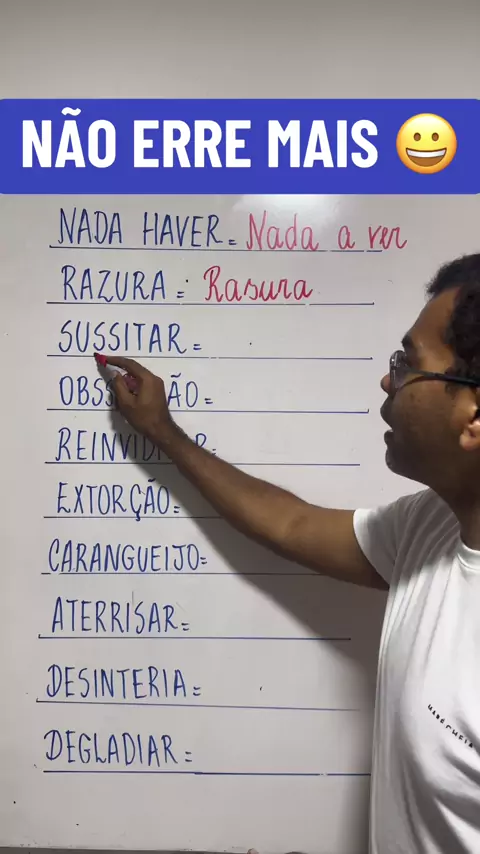 NÃO ERRE MAIS 😀
NADA HAVER = Nada a ver
RAZURA = Rasura
SUSSITAR =
REINVIDI
EXTORÇÃO =
CARANGUEIJO =
ATERRISAR =
DESINTERIA =
DEGLADIAR =